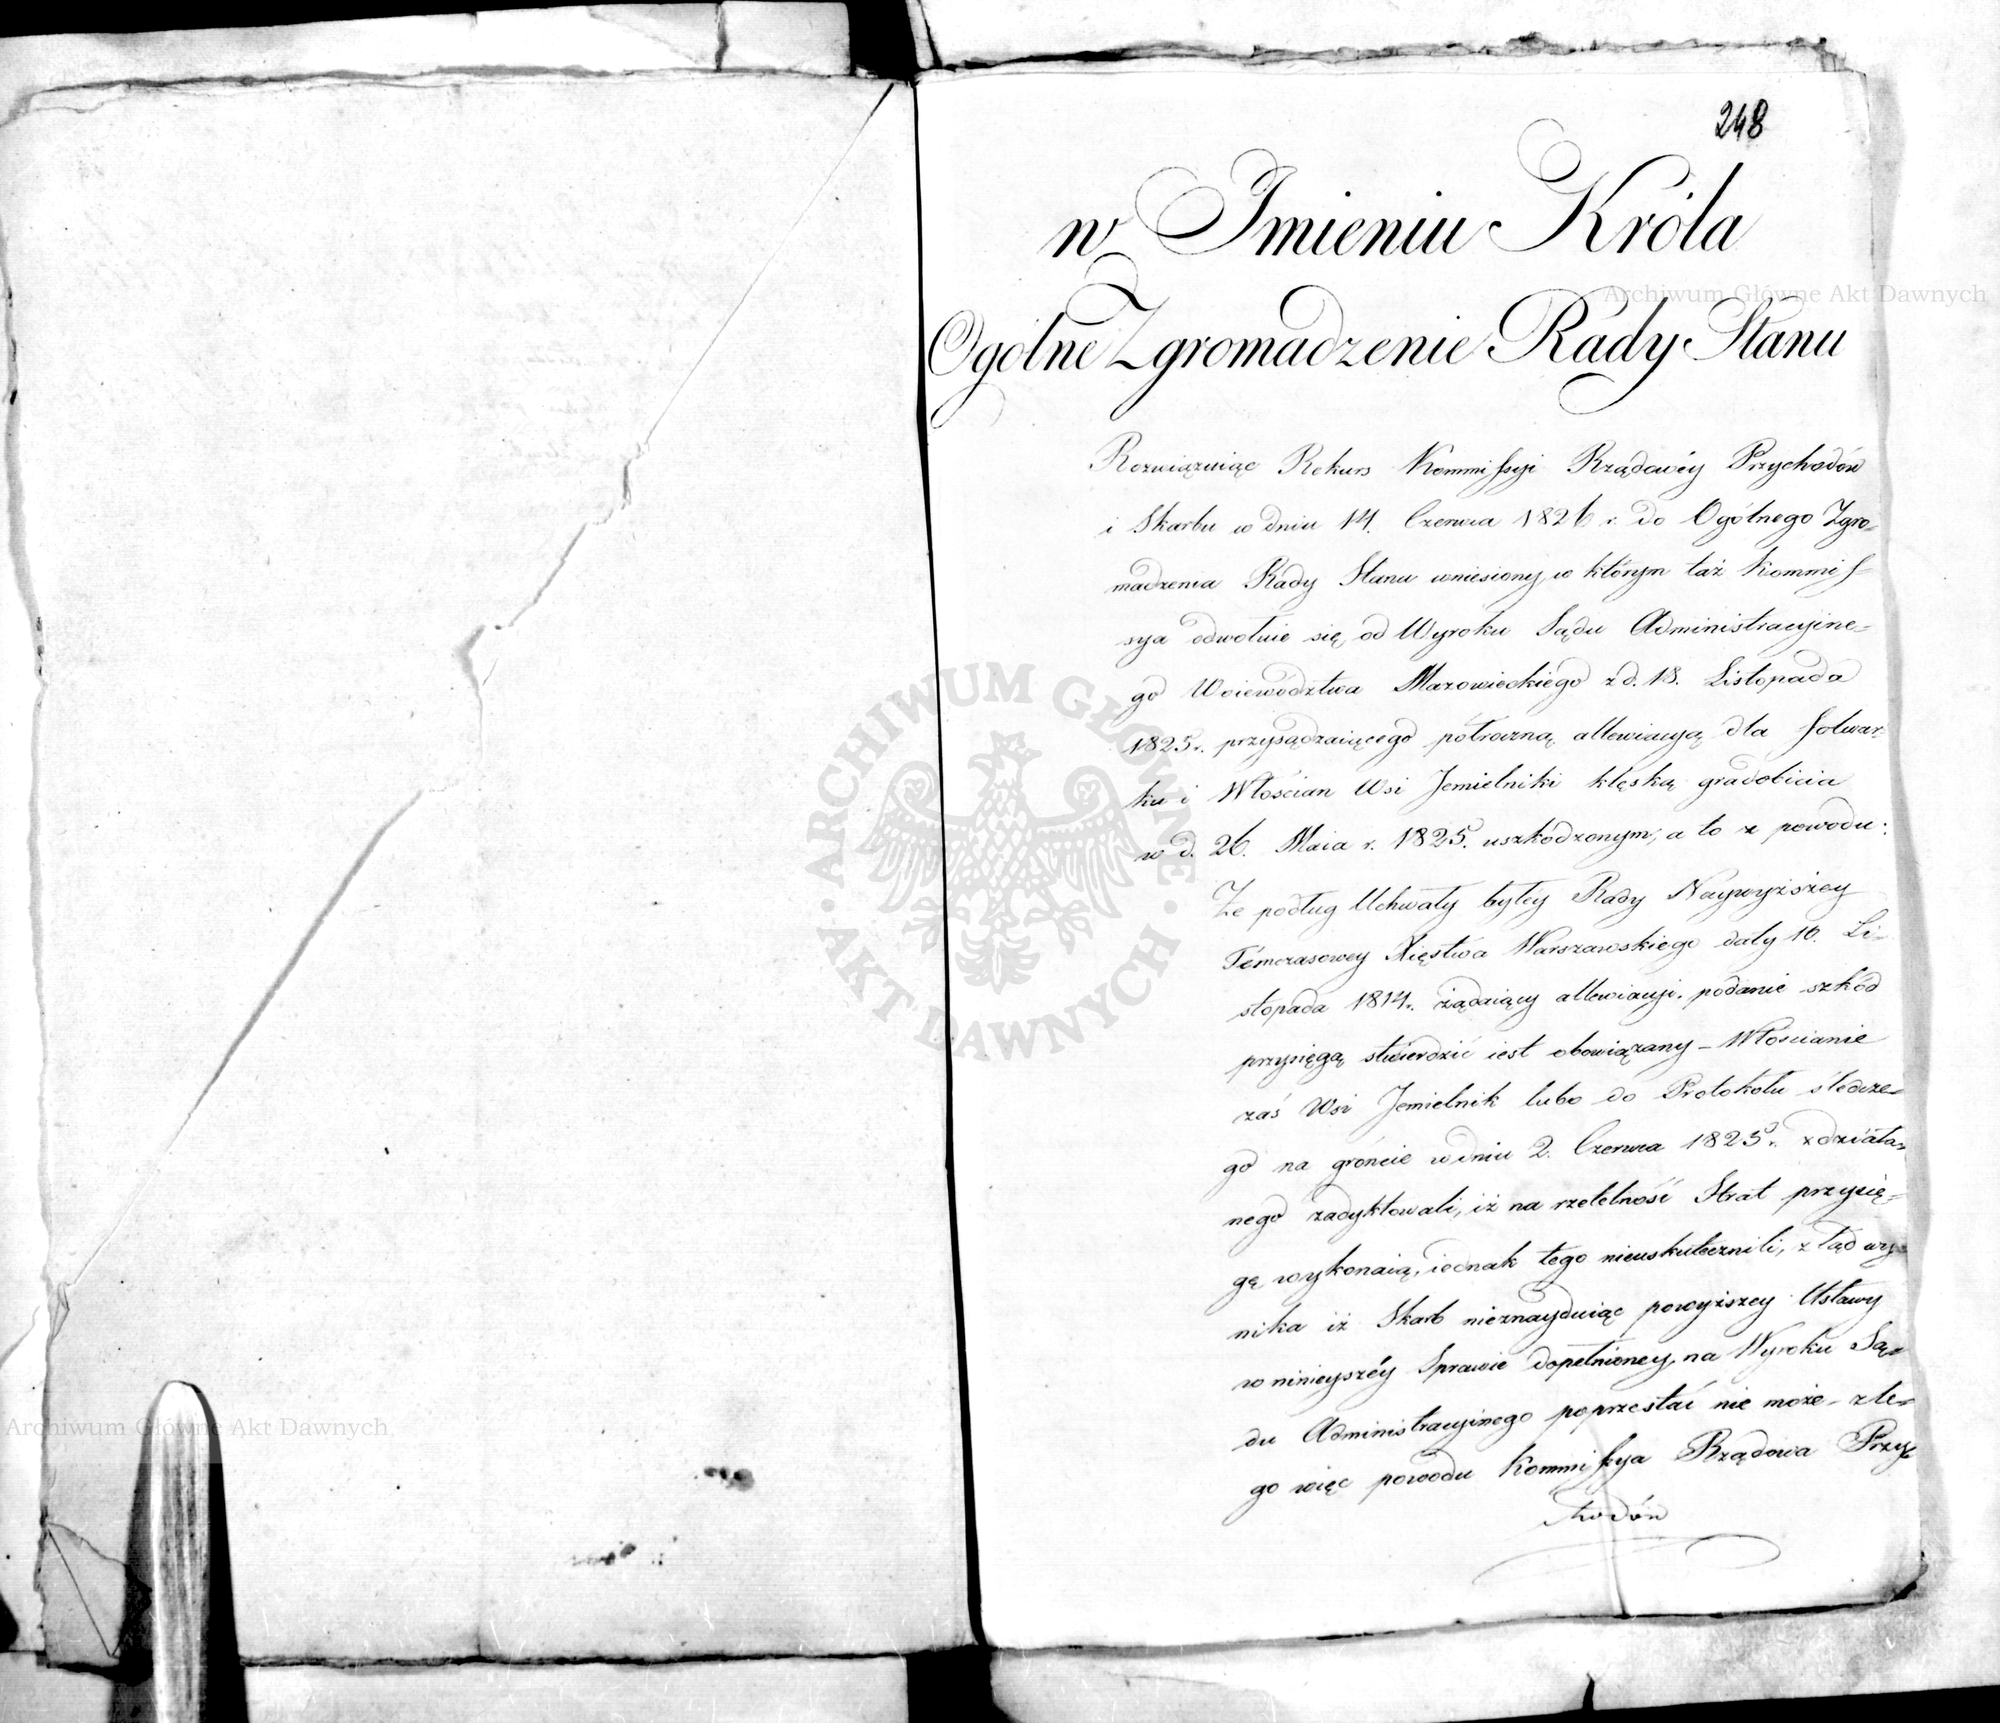 248
w Imieniu Króla
Ogólne Zgromadzenie Rady Stanu
Rozwiązuiąc Rekurs Kommissyi Rządowéy Przychodów
i Skarbu w dniu 14. Czerwca 1826 r. do Ogólnego Zgro-
madzenia Rady Stanu wniesiony, w którym taż Kommis-
sya odwołuie się, od Wyroku Sądu Administracyine-
go Woiewództwa Mazowieckiego z d. 18. Listopada
1825 r. przysądzaiącego półroczną allewiacyą dla folwar-
ku i Włościan Wsi Jemielniki klęską gradobicia
w d. 26. Maia r. 1825. uszkodzonym, a to z powodu:
Że podług Uchwały byłey Rady Naywyższey
Témczasowey Xięstwa Warszawskiego daty 10. Li-
stopada 1814 r. żądaiący allewiacyi, podanie szkód
przysięgą stwierdzić iest obowiązany – Włościanie
zaś Wsi Jemielnik lubo do Protokołu śledcze-
go na gróncie w dniu 2. Czerwca 1825 r. zdziała-
nego zadyktowali, iż na rzetelność Strat przysię-
gę wykonaią, iednak tego nieuskutecznili, ztąd wy-
nika iż Skarb nieznayduiąc powyższey Ustawy
w ninieyszéy Sprawie dopełnioney, na Wyroku Są-
du Administracyinego poprzestać nie może – z te-
go więc powodu Kommissya Rządowa Przy-
chodów
Archiwum Główne Akt Dawnych
Archiwum Główne Akt Dawnych
ARCHIWUM GŁÓWNE · AKT DAWNYCH ·